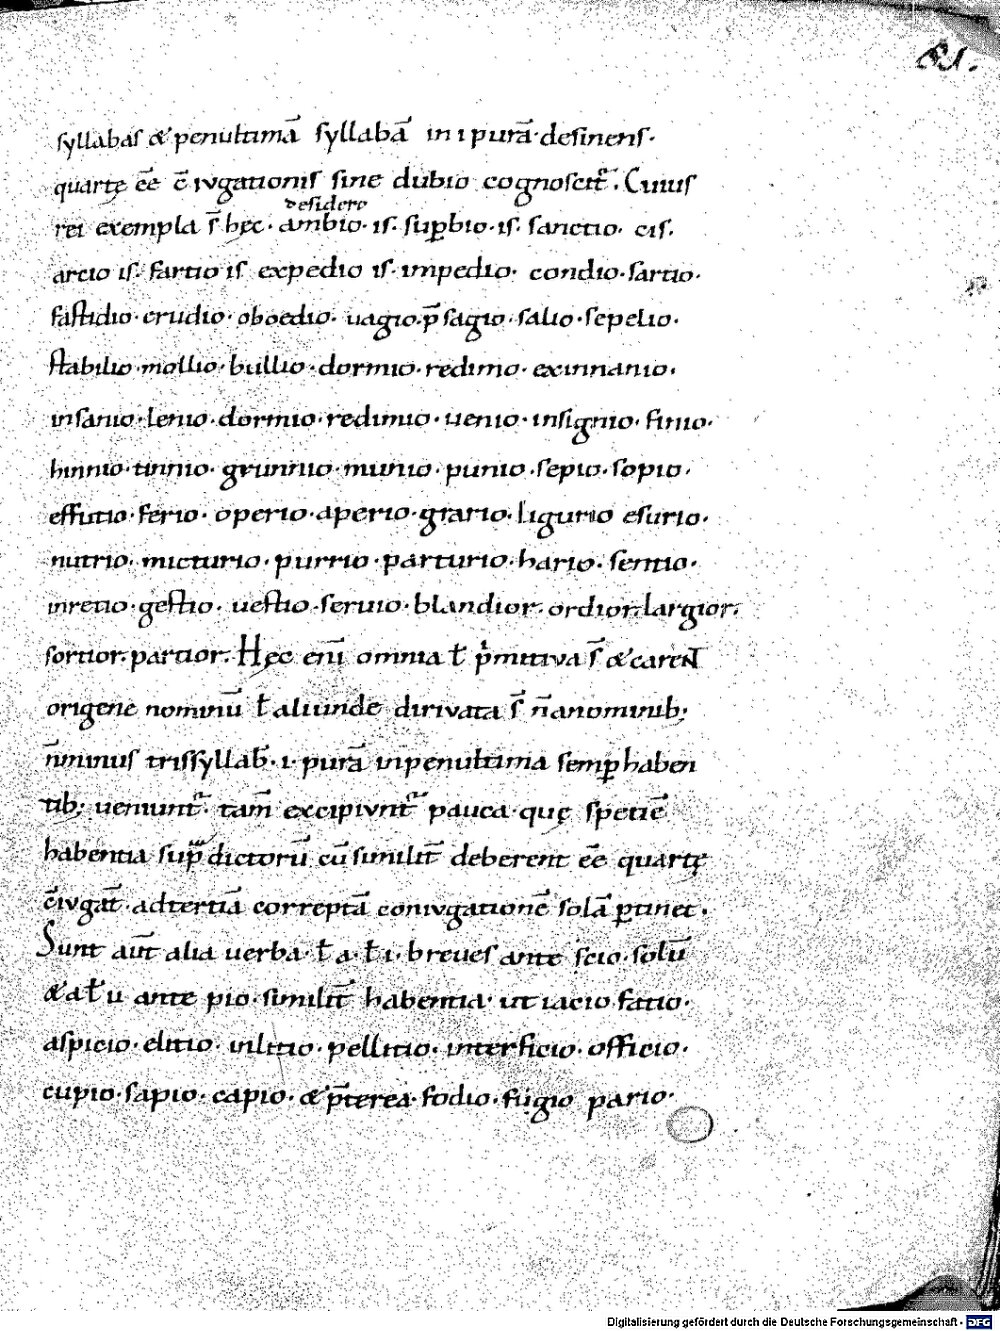 81.
syllabas & penultimā syllabā in i purā· desinens·
quartę ēē c̄iugationis sine dubio cognoscit᷑. Cuius
desidero
rei exempla s̄ hęc· ambio· is· suꝑbio· is· sanctio· cis·
arcio is· fartio is expedio is· impedio· condio· sartio·
fastidio· erudio· oboedio· uagio· p̄sagio· salio· sepelio·
stabilio· mollio· bullio· dormio· redimo· exinnanio·
insanio· lenio· dormio· redimio· uenio· insignio· finio·
hinnio· tinnio· grunnio· munio· punio· sepio· sopio·
effutio· ferio· operio· aperio· grario· ligurio esurio·
nutrio· micturio· purrio· parturio· hario· sentio·
inretio· gestio· uestio· seruio· blandior· ordior· largior·
sortior· partior· Hęc enī omnia ƚ pͥmitiva s̄ & carent
origene nominū ƚ aliunde dirivata s̄ n̄ anominib;
n̄minus trissyllab̄· i· purā inpenultima semꝑ haben
tib; ueniunt᷑· tam̄ excipiunt᷑ pauca· quę spetiē
habentia supᷓdictorū cū similit̄ deberent ēē quartę
c̄iugat̄· adtertiā correptā coniugationē solā ꝑtinet·
Sunt aut̄ alia uerba· ƚ a· ƚ i· breues ante scio· solū
& a ƚ u ante pio· similit̄ habentia· ut iacio fatio·
aspicio· elitio· inlitio· pellitio· interficio· officio·
cupio· sapio· capio· & p̄terea· fodio· fugio pario·
Digitalisierung gefördert durch die Deutsche Forschungsgemeinschaft - DFG